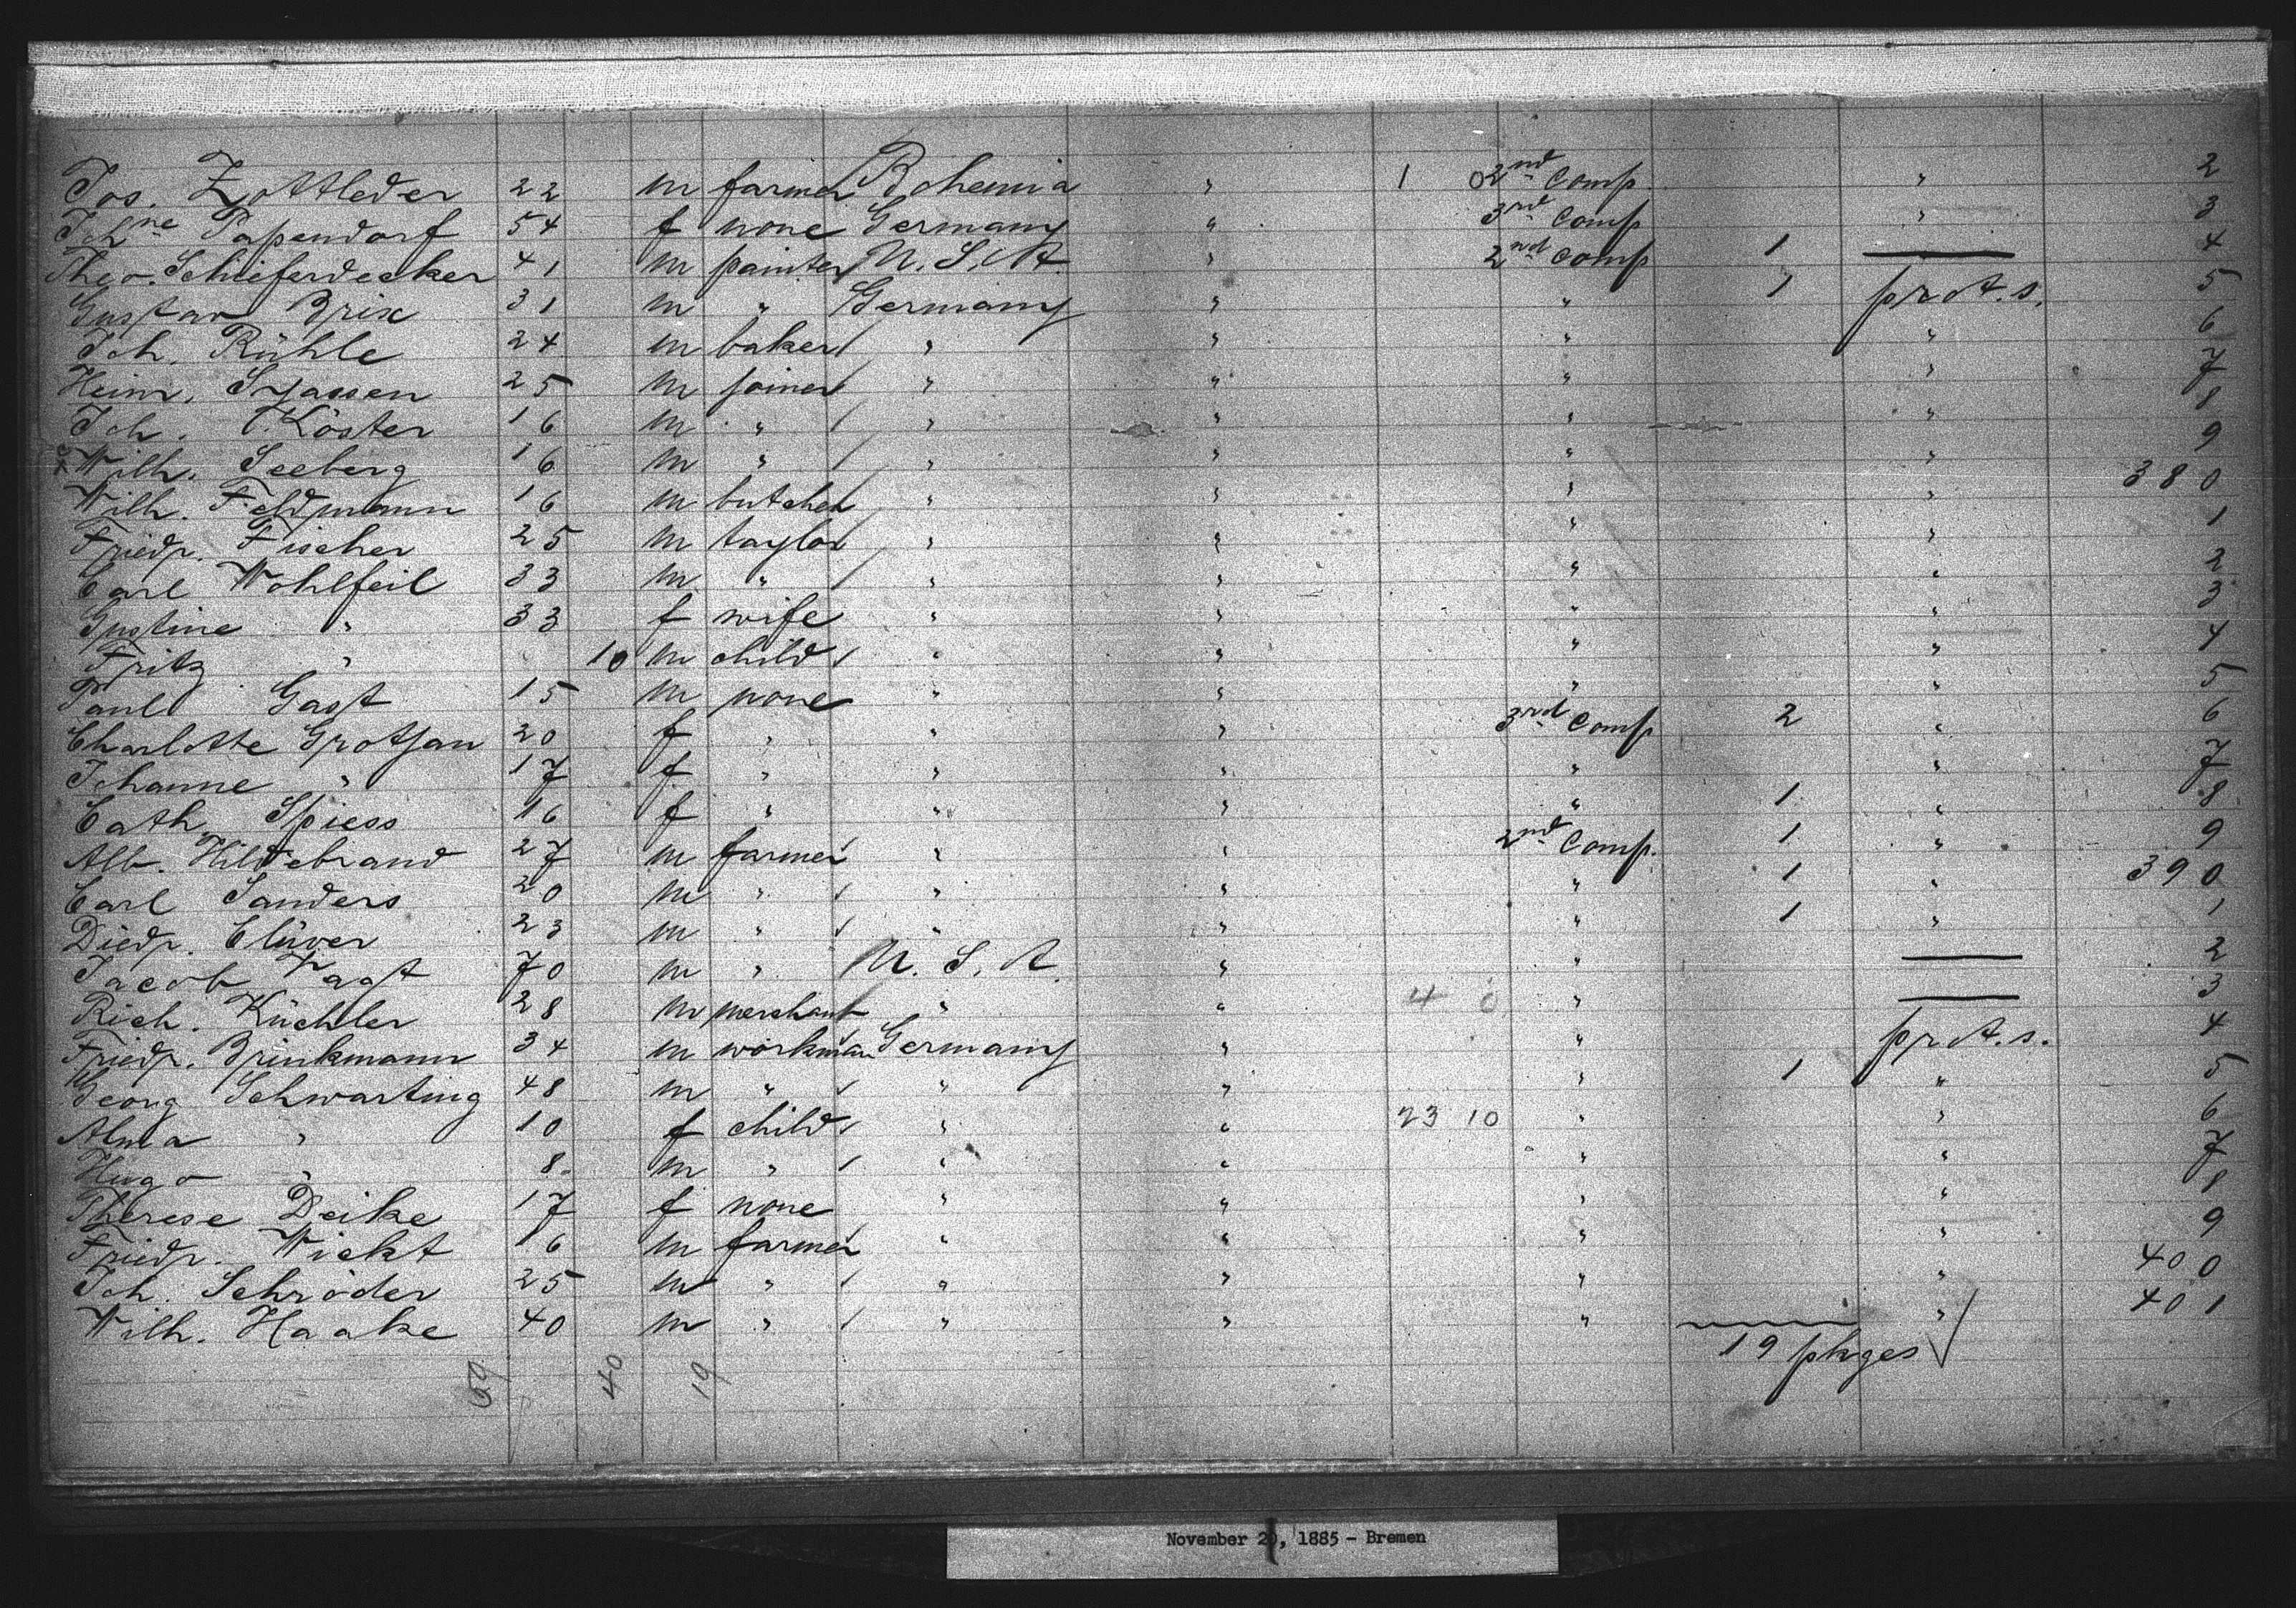 Jos. Zottleder 22 m farmer Bohemia " 1 0 2nd Comp. " 2
Johne Papendorf 54 f none Germany " 3rd Comp " 3
Theo. Schieferdecker 41 m painter U. S. A. " 2nd Comp 1 — 4
Gustav Brix 31 m " Germany " " 1 prot. s. 5
Joh. Rühle 24 m baker " " " " 6
Heinr. 25 m joiner " " " " 7
Joh. Köster 16 m " " " " " 8
Wilh. Seeberg 16 m " " " " " 9
Wilh. Feldmann 16 m butcher " " " " 380
Friedr. Fischer 25 m taylor " " " " 1
Carl Wohlfeil 33 m " " " " " 2
Justine " 33 f wife " " " " 3
Fritz " 10 m child " " " " 4
Paul Gast 15 m none " " " " 5
Charlotte Grotjan 20 f " " " 3rd Comp 2 " 6
Johanne " 17 f " " " " " 7
Cath. Spiess 16 f " " " " 1 " 8
Alb. Hildebrand 27 m farmer " " 2nd Comp. 1 " 9
Carl Sanders 20 m " " " " 1 " 390
Diedr. Clüver 23 m " " " " 1 " 1
Jacob Vagt 70 m " U. S. A. " " — 2
Rich. Küchler 28 m merchant " " 4 0 " — 3
Friedr. Brinkmann 34 m workman Germany " " prot. s. 4
Georg Schwarting 48 m " " " " 1 " 5
Alma " 10 f child " " 23 10 " " 6
Hugo " 8 m " " " " " 7
Therese Deike 17 f none " " " " 8
Friedr. Wickt 16 m farmer " " " " 9
Joh. Schröder 25 m " " " " " 400
Wilh. Haake 40 m " " " " " 401
19 pkges √
59 40 19
November 20, 1885 - Bremen